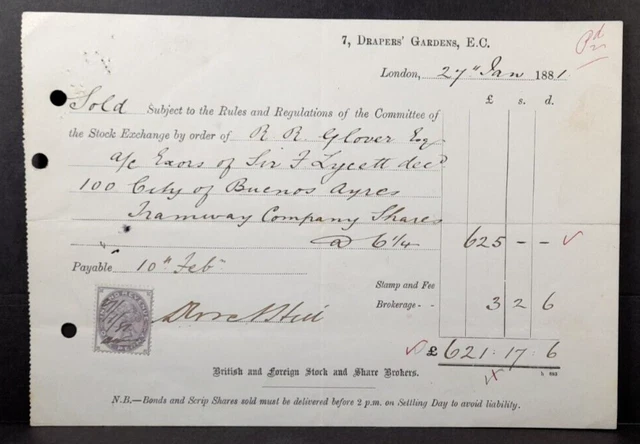 7, Drapers' Gardens, E.C.
Pd
London, 27" Jan 1881
£ s. d.
Sold Subject to the Rules and Regulations of the Committee of
the Stock Exchange by order of R R. Glover Esq
a/c Exors of Sir F Lycett decd
100 City of Buenos Ayres
Tramway Company Shares
" @ 6 1/4 625 – –
Payable 10" Feb
Stamp and Fee
Brokerage - - 3 2 6
£ 621 : 17 : 6
British and Foreign Stock and Share Brokers.
N.B.—Bonds and Scrip Shares sold must be delivered before 2 p.m. on Settling Day to avoid liability.